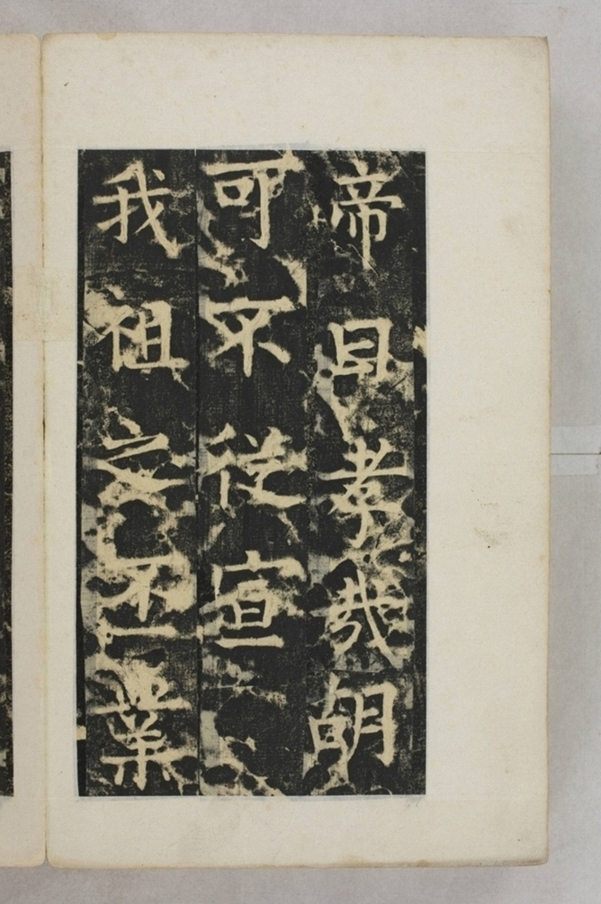 帝曰孝哉朗
可不從宣
我祖之丕業